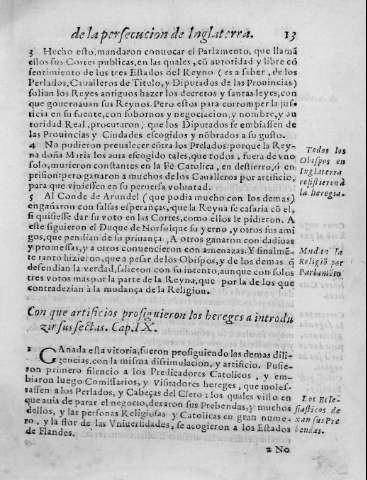 de la persecucion de Inglaterra. 13
3 Hecho esto, mandaron conuocar el Parlamento, que llamã
ellos sus Cortes publicas, en las quales, cõ autoridad y libre cõ
sentimiento de los tres Estados del Reyno (es a saber, de los
Perlados, Caualleros de Titulo, y Diputados de las Prouincias)
solian los Reyes antiguos hazer los decretos y santas leyes, con
que gouernauan sus Reynos. Pero estos para corromper la jus
ticia en su fuente, con sobornos y negociacion, y nombre, y au
toridad Real, procuraron, que los Diputados se embiassen de
las Prouincias y Ciudades escogidos y nõbrados a su gusto.
4 No pudieron preualecer cõtra los Prelados, porque la Rey-
na doña Maria los auia escogido tales, que todos, fuera de vno
solo, murieron constantes en la Fé Catolica, en destierro, ò en
prision; pero ganaron a muchos de los Caualleros por artificio,
para que viniessen en su peruersa voluntad.
Todos los
Obispos en
Inglaterra
resistieron à
la heregia.
5 Al Conde de Arundel (que podia mucho con los demas)
engañaron con falsas esperanças, que la Reyna se casaria cõ el,
si quisiesse dar su voto en las Cortes, como ellos le pidieron. A
este siguieron el Duque de Norfolque su yerno, y otros sus ami
gos, que pendian de su priuança. A otros ganaron con dadiuas
y promessas, y a otros conuencieron con amenazas. Y finalmẽ-
te tanto hizieron, que a pesar de los Obispos, y de los demas q̃
defendian la verdad, salieron con su intento, aunque con solos
tres votos mas por la parte de la Reyna, que por la de los que
contradezian à la mudança de la Religion.
Mudase la
Religiõ por
Parlamẽto.
Con que artificios prosiguieron los hereges a introdu
zir sus sectas. Cap. IX.
1 GAnada esta vitoria, fueron prosiguiendo las demas dili-
gencias, con la misma dissimulacion, y artificio. Pusie-
ron primero silencio a los Predicadores Catolicos, y em-
biaron luego Comissarios, y Visitadores hereges, que moles-
tassen a los Perlados, y Cabeças del Clero: los quales visto en
que auia de parar el negocio, dexaron sus Prebendas, y muchos
dellos, y las personas Religiosas y Catolicas en gran nume-
ro, y la flor de las Vniuersidades, se acogieron a los Estados
de Flandes.
Los Ecle-
siasticos de
xan sus Pre
bendas.
2 No